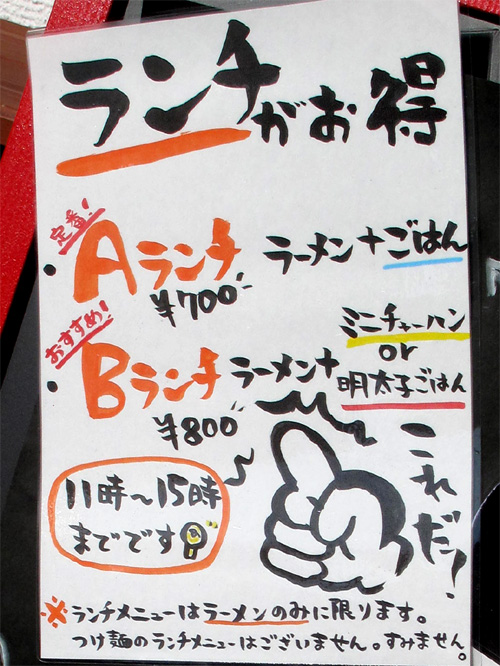 ランチがお得
定番!
・Aランチ ラーメン+ごはん
¥700-
おすすめ!
・Bランチ ラーメン+ ミニチャーハン
or
明太子ごはん
¥800-
これだっ!
11時〜15時
までです
※ランチメニューはラーメンのみに限ります。
つけ麺のランチメニューはございません。すみません。